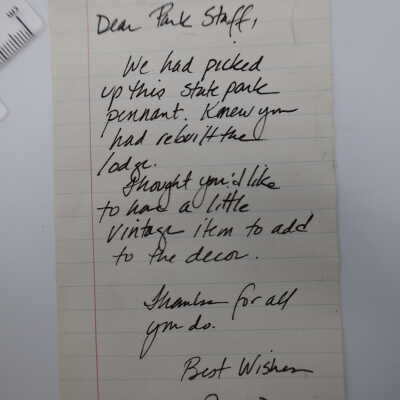 Dear Park Staff,
We had picked
up this state park
pennant. Knew you
had rebuilt the
lodge.
Thought you'd like
to have a little
vintage item to add
to the decor.
Thanks for all
you do.
Best Wishes